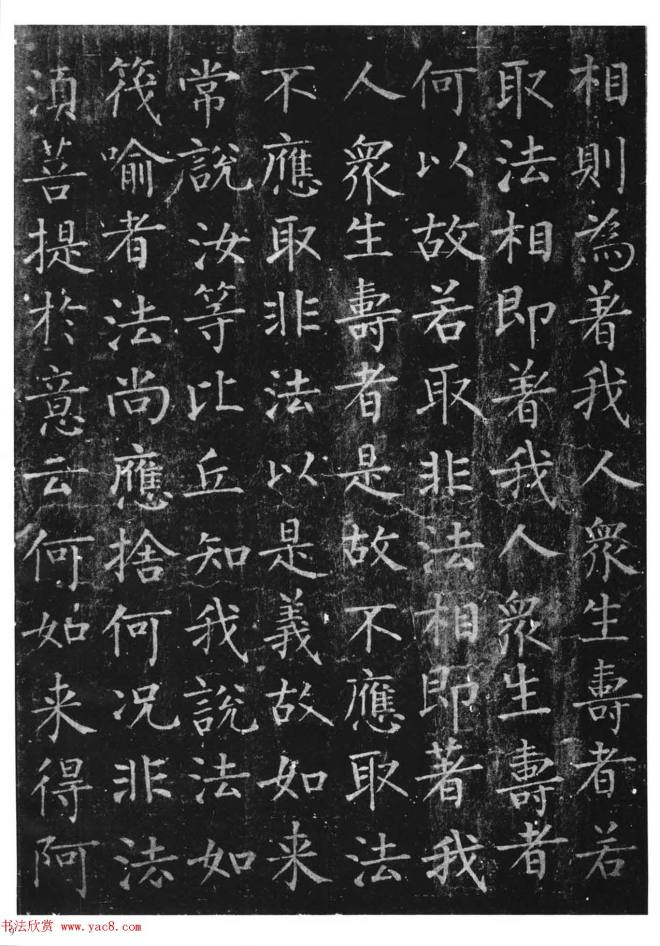 相則為著我人衆生壽者若
取法相即著我人衆生壽者
何以故若取非法相即著我
人衆生壽者是故不應取法
不應取非法以是義故如来
常說汝等比丘知我說法如
筏喻者法尚應捨何况非法
湏菩提於意云何如来得阿
书法欣赏 www.yac8.com